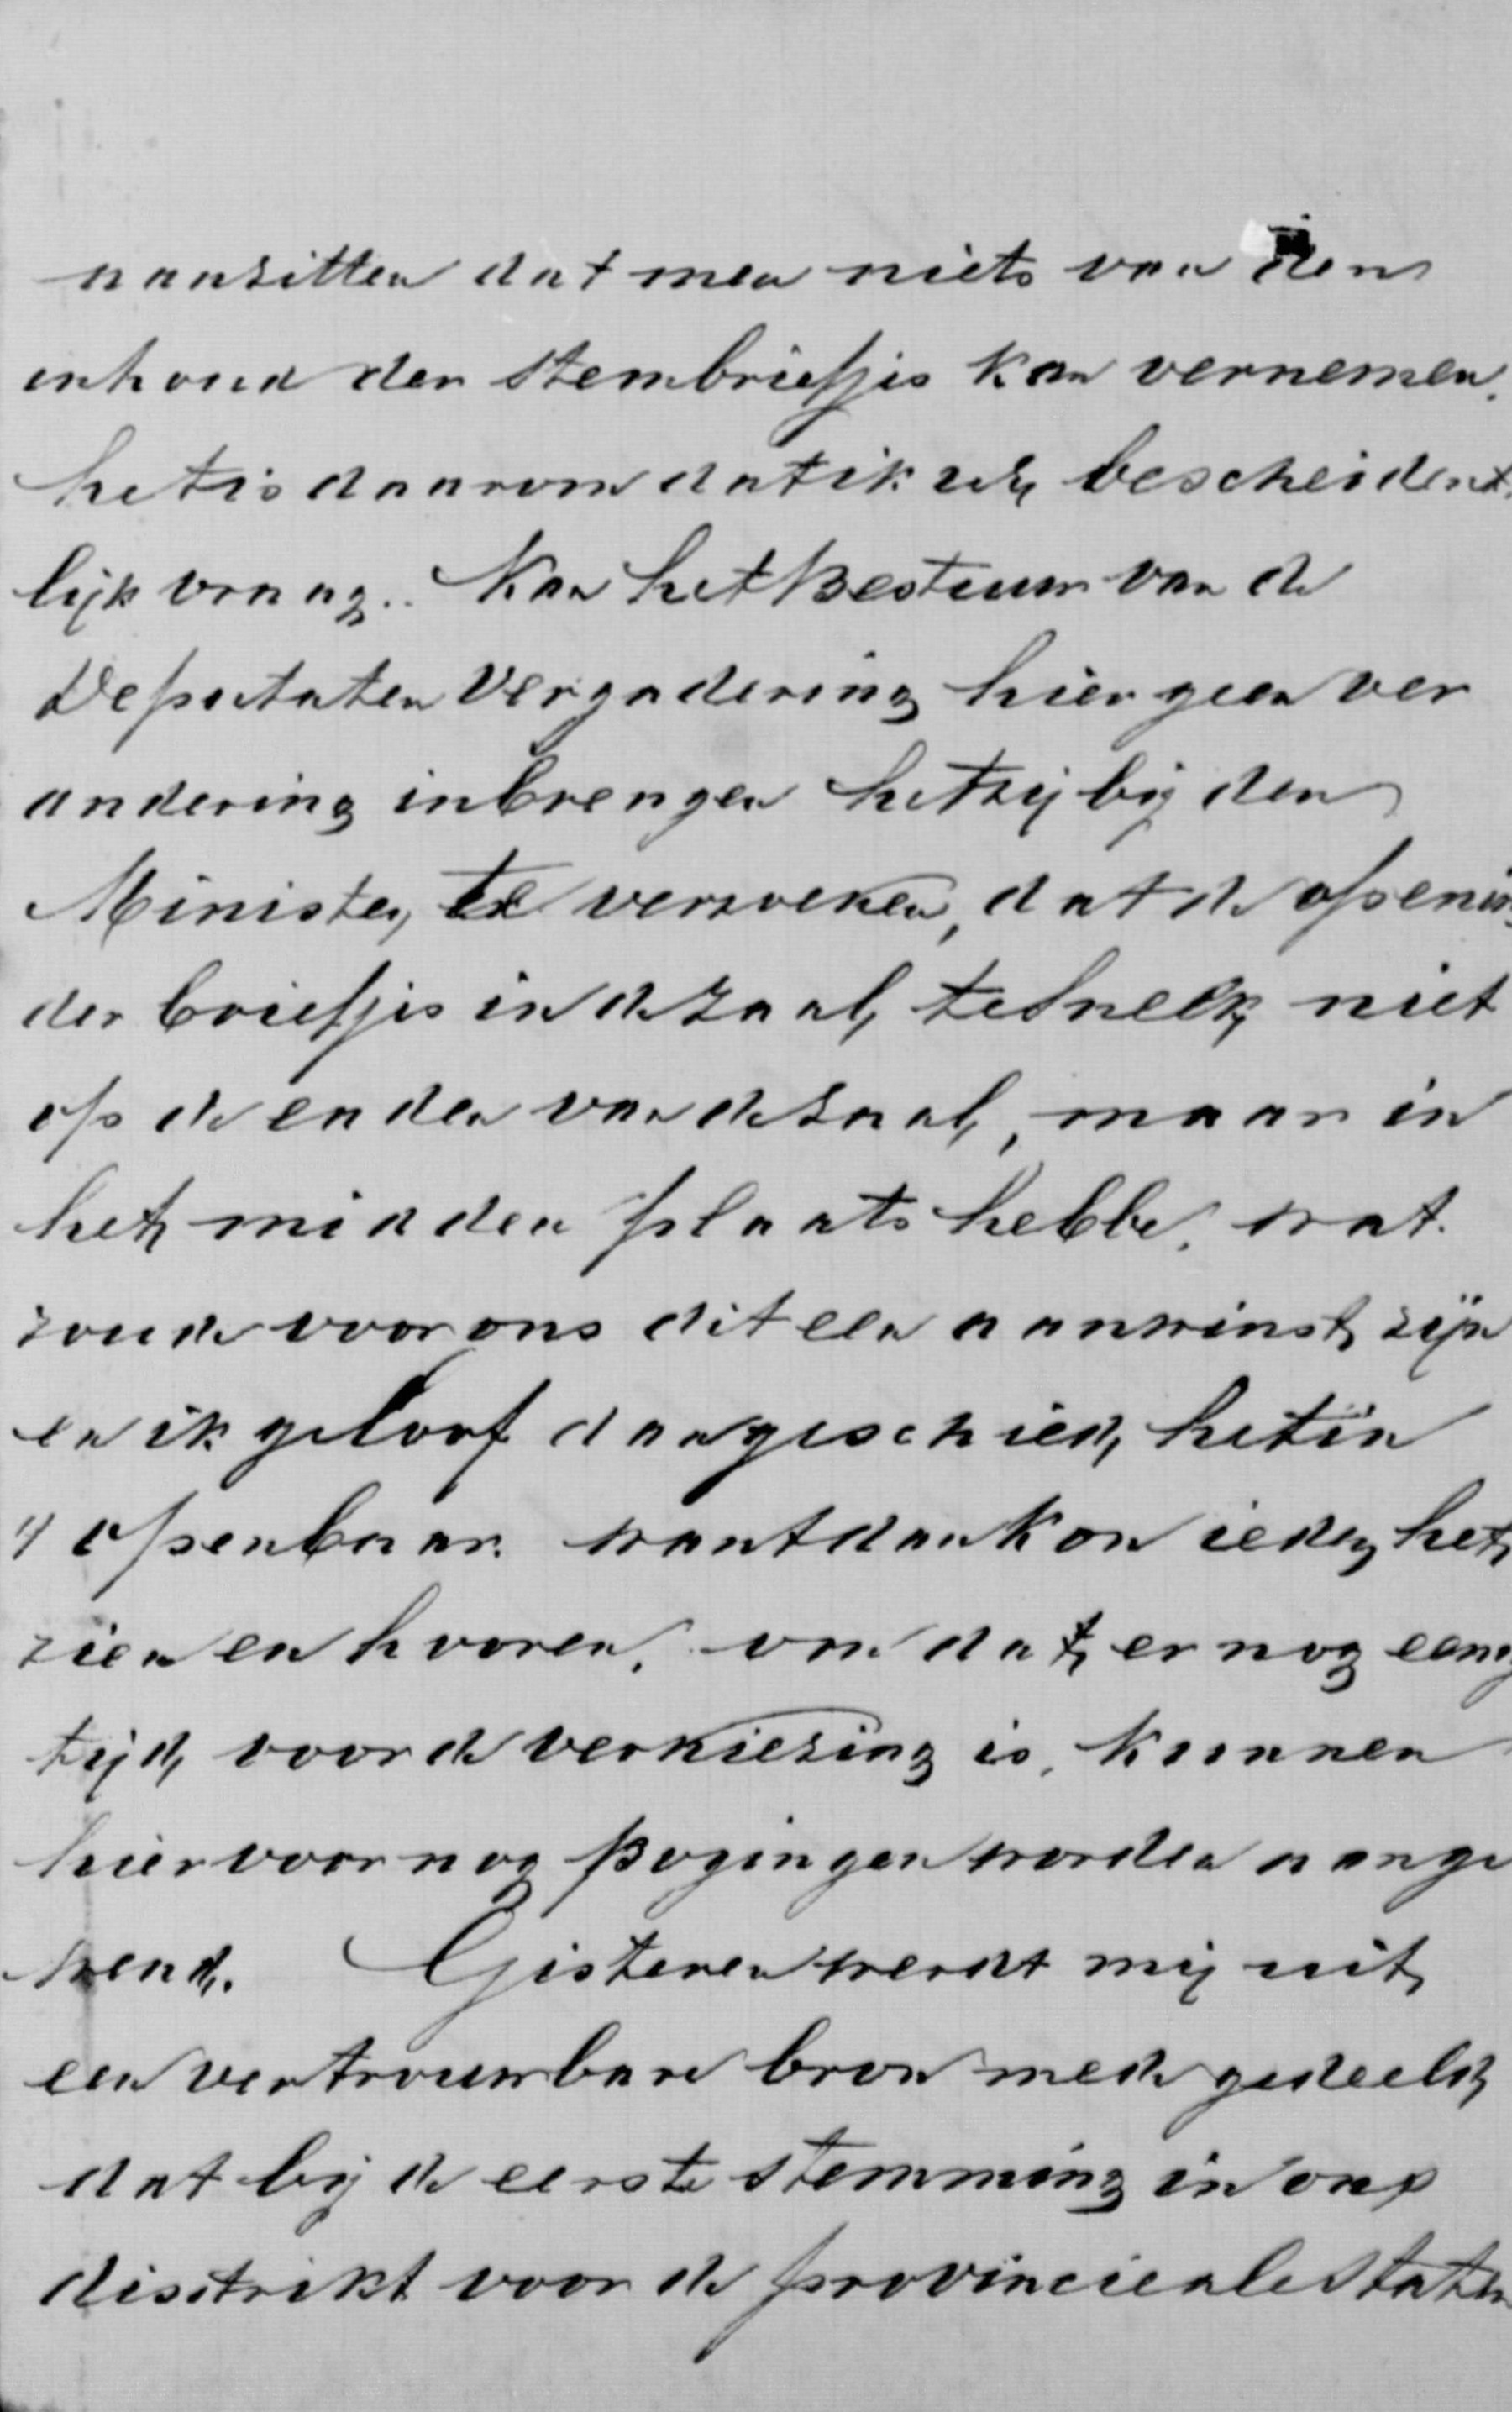 aanzitten dat men niets van den
inhoud der stembriefjes kan vernemen.
het is daarom dat ik zeer bescheident
lijk vraag.. Kan het Bestuur van de
Deputaten Vergadering hier geen ver
andering inbrengen het zij bij den
Minister te verzoeken, dat de opening
der briefjes in de zaal, 
op de enden van de zaal, maar in
het midden plaats hebbe, wat
zoude voor ons dit een aanwinst zijn
en ik geloof dan geschied, het in
't openbaar. want dan kon ieder het
zien en hooren, om dat er nog eenig
tijd, voor de verkiezing is, kunnen
hier voor nog pogingen worden aange
wend. Gisteren werdt mij uit
een vertrouwbare bron mede gedeeld,
dat bij de eerste stemming in ons
distrikt voor de provincieale Staten